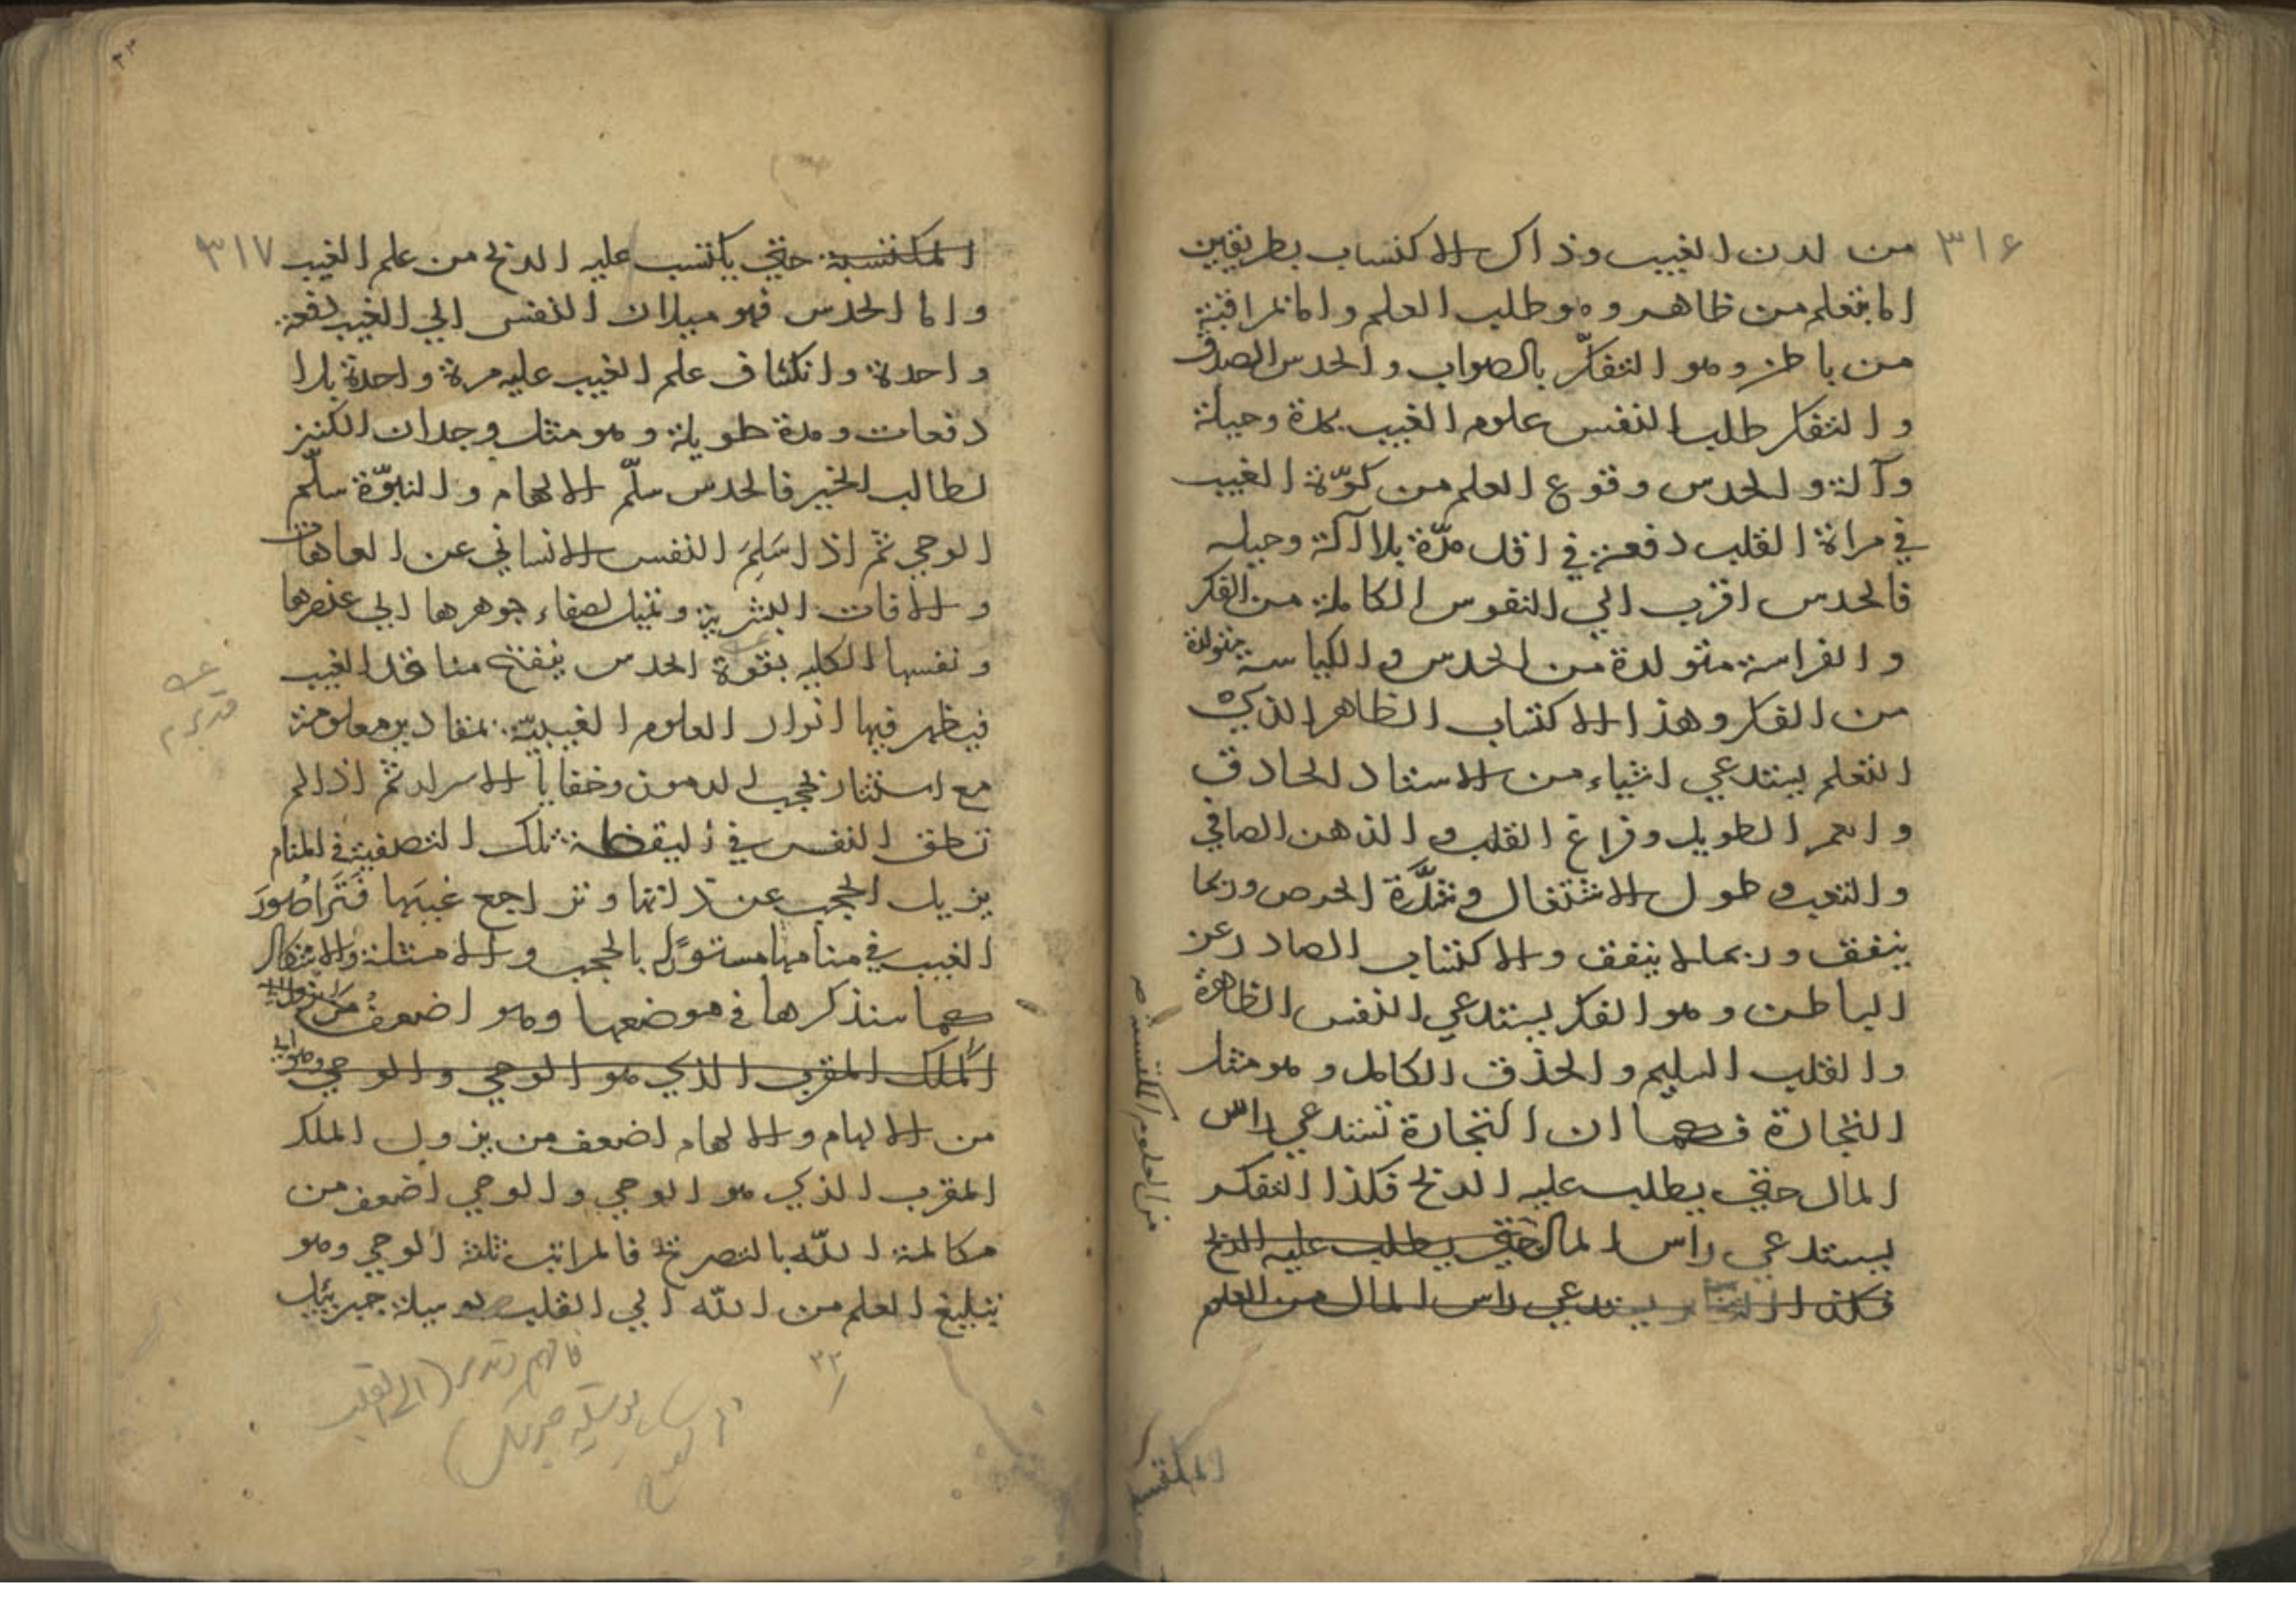 ٣١۶
من لدن الغيب وذاك الاكتساب بطريقين
اما بتعلم من ظاهر وهو طلب العلم واما بمراقبة
من باطن وهو التفكّر بالصواب والحدس الصدق
والتفكر طلب النفس علوم الغيب بمدة وحيلة
وآلة والحدس وقوع العلم من كوّة الغيب
في مراة القلب دفعة في اقل مدّة بلا آلة وحيله
فالحدس اقرب الي النفوس الكاملة من الفكر
والفراسة متولدة من الحدس والكياسة متولدة
من الفكر وهذا الاكتساب الظاهر الذي
التعلم يستدعي اشياء من الاستاد الحاذق
والعمر الطويل وفراغ القلب والذهن الصافي
والتعب وطول الاشتغال وشدَّة الحرص وربما
يتفق وربما لا يتفق والاكتساب الصادر عن
الباطن وهو الفكر يستدعي النفس الظاهرة
والقلب السليم والحذق الكامل وهو مثل
التجارة فكما ان التجارة تستدعي راس
المال حتي يطلب عليه الربح فكذا التفكر
يستدعي راس المال حتي يطلب عليه الربح
فكذا التفكر يستدعي راس المال من العلم
من العلوم المكتسبة صح
المكتسبة
٣١٧
٣٣
المكتسبة حتي يكتسب عليه الربح من علم الغيب
واما الحدس فهو ميلان النفس الي الغيب دفعة
واحدة وانكشاف علم الغيب عليه مرة واحدة بلا
دفعات ومدة طويلة وهو مثل وجدان الكنز
لطالب الخير فالحدس سلّم الالهام والنبوّة سلّم
الوحي ثم اذا سَلِمَ النفس الانساني عن العاهات
والافات البشرية وتميل لصفاء جوهرها الي عنصرها
ونفسها الكليه بقوة الحدس ينفتح منافذ الغيب
فيظهر فيها انوار العلوم الغيبيّة بمقادير معلومة
مع استتار بحجب الرموز وخفايا الاسرار ثم اذا لم
تطق النفس في اليقظة تلك التصفية في المنام
يزيل الحجب عن ذاتها وتراجع غيبَها فتَرَا صُورَ
الغيب في منامها مستورًا بالحجب والامثلة والاشكال
كما سنذكرها في موضعها وهو اضعفُ من نزول
المَلَك المقرب الذي هو الوحي والوحي وهو
من الالهام والالهام اضعف من نزول الملك
المقرب الذي هو الوحي والوحي اضعف من
مكالمة اللّه بالتصريح فالمراتب ثلثة الوحي وهو
تبليغ العلم من اللّه الي القلب بوسيلة جبرئيل
٣٢
فافهم وتدبر (الى القلب
بوسيلة جبرئيل)